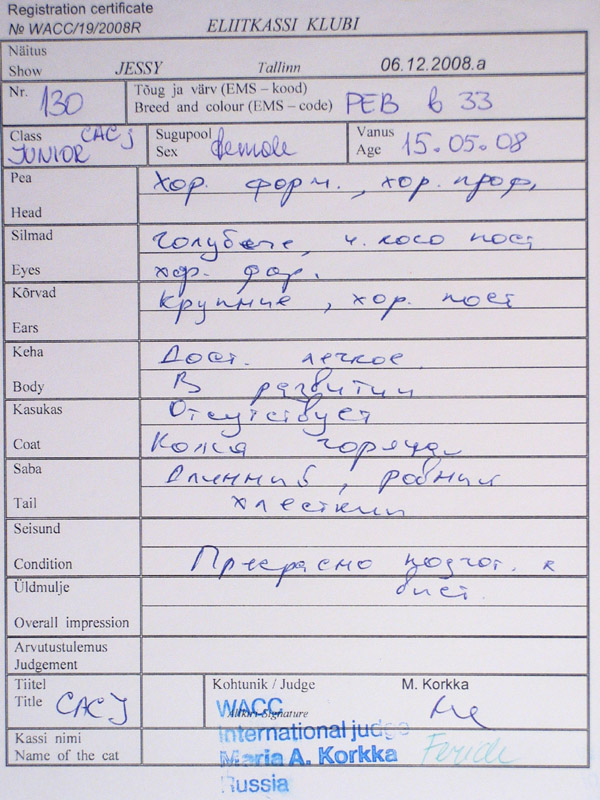 Registration certificate
№ WACC/19/2008R ELIITKASSI KLUBI
Näitus
Show JESSY Tallinn 06.12.2008.a
Nr. 130 Tõug ja värv (EMS – kood)
Breed and colour (EMS – code) PEB b 33
Class CACJ Sugupool Vanus
JUNIOR Sex female Age 15.05.08
Pea Хор. форм., хор. проф.
Head
Silmad голубые, ч. косо пост
Eyes хор. фор.
Kõrvad крупные, хор. пост
Ears
Keha Дост. легкое
Body В развитии
Kasukas Отсутствует
Coat Кожа горячая
Saba Длинный, ровный
Tail хлесткий
Seisund
Condition Прекрасно подгот. к
Üldmulje выст.
Overall impression
Arvutustulemus
Judgement
Tiitel Kohtunik / Judge M. Korkka
Title CACJ WACC
Allkiri-Signature
International judge
Kassi nimi Maria A. Korkka
Name of the cat Russia